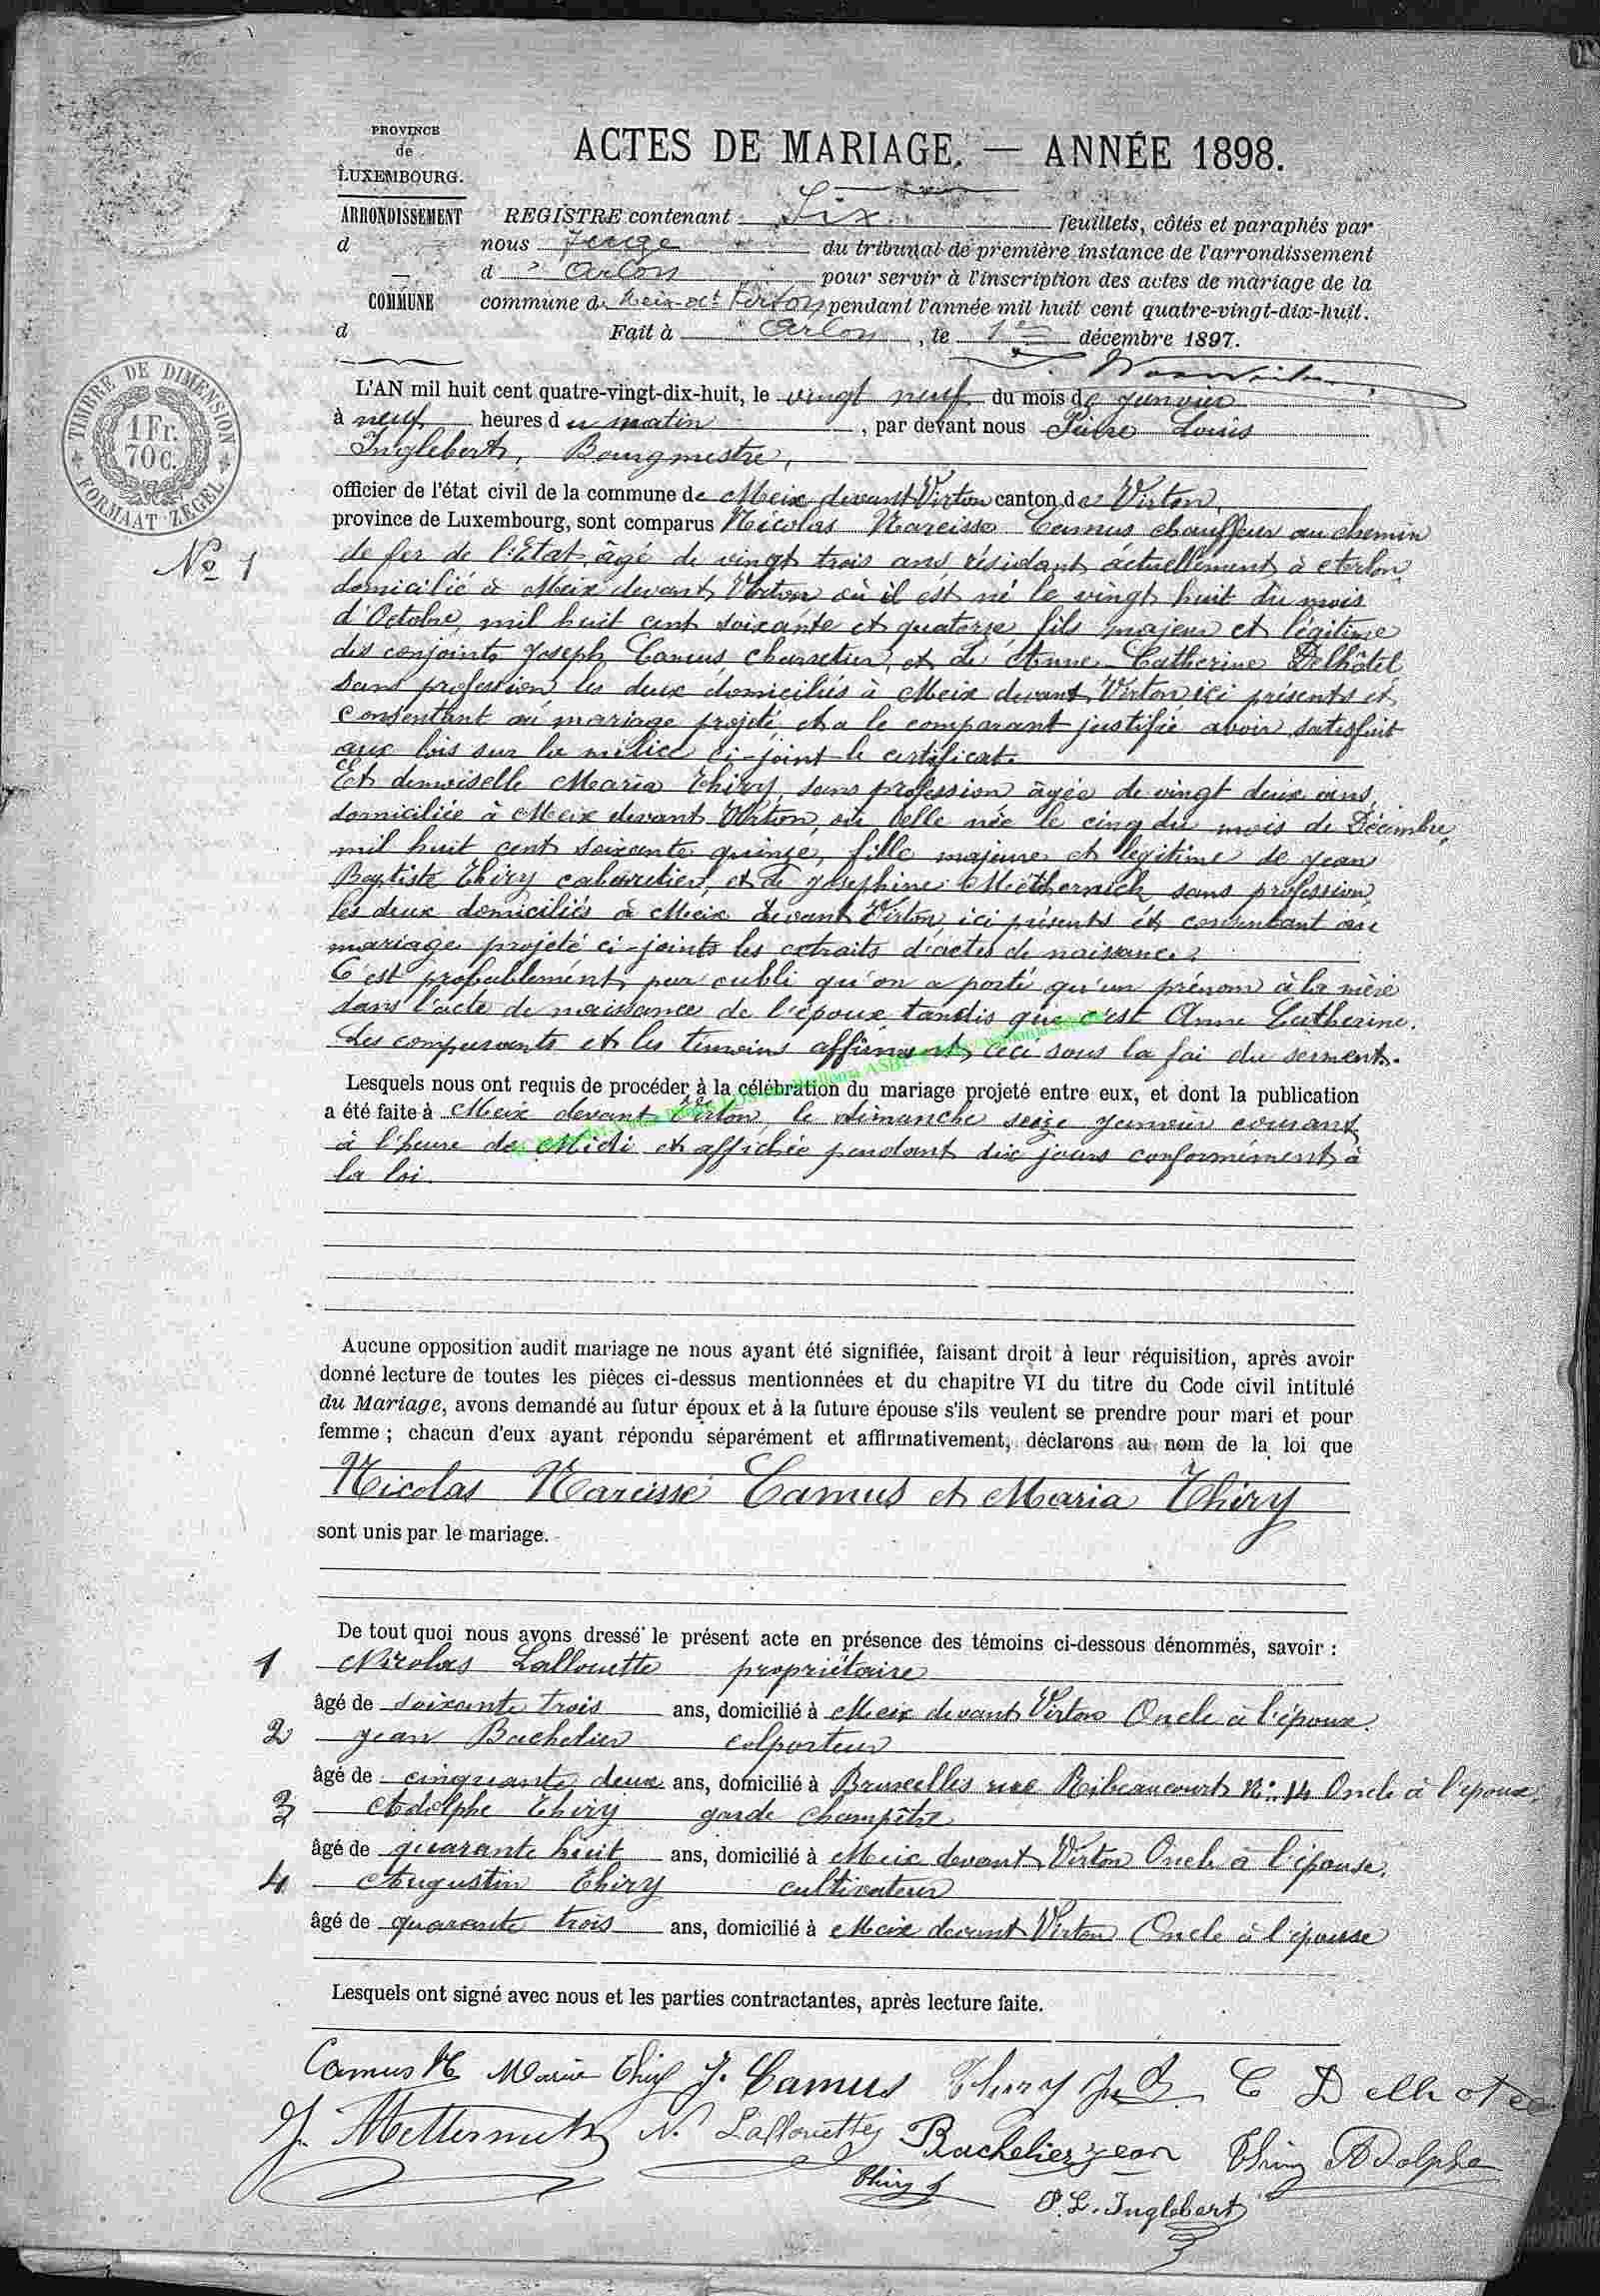 PROVINCE
de
LUXEMBOURG.
ACTES DE MARIAGE. — ANNÉE 1898.
ARRONDISSEMENT
d
COMMUNE
d
REGISTRE contenant Six feuillets, côtés et paraphés par
nous Juge du tribunal de première instance de l'arrondissement
d' Arlon pour servir à l'inscription des actes de mariage de la
commune de Meix-dt Virton pendant l'année mil huit cent quatre-vingt-dix-huit.
Fait à Arlon, le 1er décembre 1897.
TIMBRE DE DIMENSION
1 Fr.
70 c.
FORMAAT ZEGEL
No 1
L'AN mil huit cent quatre-vingt-dix-huit, le vingt neuf du mois de janvier
à neuf heures du matin, par devant nous Pierre Louis
Inglebert, Bourgmestre,
officier de l'état civil de la commune de Meix devant Virton canton de Virton,
province de Luxembourg, sont comparus Nicolas Narcisse Camus chauffeur au chemin
de fer de l'Etat, âgé de vingt trois ans résidant actuellement à Arlon,
domicilié à Meix devant Virton où il est né le vingt huit du mois
d'Octobre, mil huit cent soixante et quatorze, fils majeur et légitime
des conjoints Joseph Camus, charretier, et de Anne Catherine Delhôtel
sans profession les deux domiciliés à Meix devant Virton ici présents et
consentant au mariage projeté et a le comparant justifié avoir satisfait
aux lois sur la milice ci-joint le certificat.
Et demoiselle Maria Thiry, sans profession âgée de vingt deux ans,
domiciliée à Meix devant Virton, où elle née le cinq du mois de Décembre,
mil huit cent soixante quinze, fille majeure et légitime de Jean
Baptiste Thiry cabaretier, et de Josephine Metthernich sans profession,
les deux domiciliés à Meix devant Virton, ici présents et consentant au
mariage projeté ci-joints les extraits d'actes de naissance.
C'est probablement par oubli qu'on a porté qu'un prénom à la mère
dans l'acte de naissance de l'époux tandis que c'est Anne Catherine.
Les comparants et les témoins affirment ceci sous la foi du serment.
Lesquels nous ont requis de procéder à la célébration du mariage projeté entre eux, et dont la publication
a été faite à Meix devant Virton, le dimanche seize janvier courant
à l'heure de Midi et affichée pendant dix jours conformément à
la loi.
Aucune opposition audit mariage ne nous ayant été signifiée, faisant droit à leur réquisition, après avoir
donné lecture de toutes les pièces ci-dessus mentionnées et du chapitre VI du titre du Code civil intitulé
du Mariage, avons demandé au futur époux et à la future épouse s'ils veulent se prendre pour mari et pour
femme ; chacun d'eux ayant répondu séparément et affirmativement, déclarons au nom de la loi que
Nicolas Narcisse Camus et Maria Thiry
sont unis par le mariage.
De tout quoi nous avons dressé le présent acte en présence des témoins ci-dessous dénommés, savoir :
1 Nicolas Lallouette propriétaire
âgé de soixante trois ans, domicilié à Meix devant Virton Oncle à l'époux.
2 Jean Bachelier colporteur
âgé de cinquante deux ans, domicilié à Bruxelles rue Ribeaucourt No 14 Oncle à l'époux.
3 Adolphe Thiry garde champêtre
âgé de quarante huit ans, domicilié à Meix devant Virton Oncle à l'épouse.
4 Augustin Thiry cultivateur
âgé de quarante trois ans, domicilié à Meix devant Virton Oncle à l'épouse
Lesquels ont signé avec nous et les parties contractantes, après lecture faite.
Camus N Maria Thiry J. Camus Thiry J B C Delhotel
J. Metternich N. Lallouette Bachelier Jean Thiry Adolphe
Thiry A P. L. Inglebert